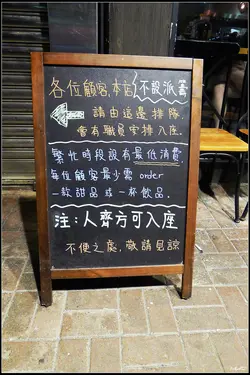 各位顧客,本店不設派籌
請由這邊排隊,
會有職員安排入座。
繁忙時段設有最低消費,
每位顧客最少需 order
一款甜品或一杯飲品。
注:人齊方可入座
不便之處,敬請見諒